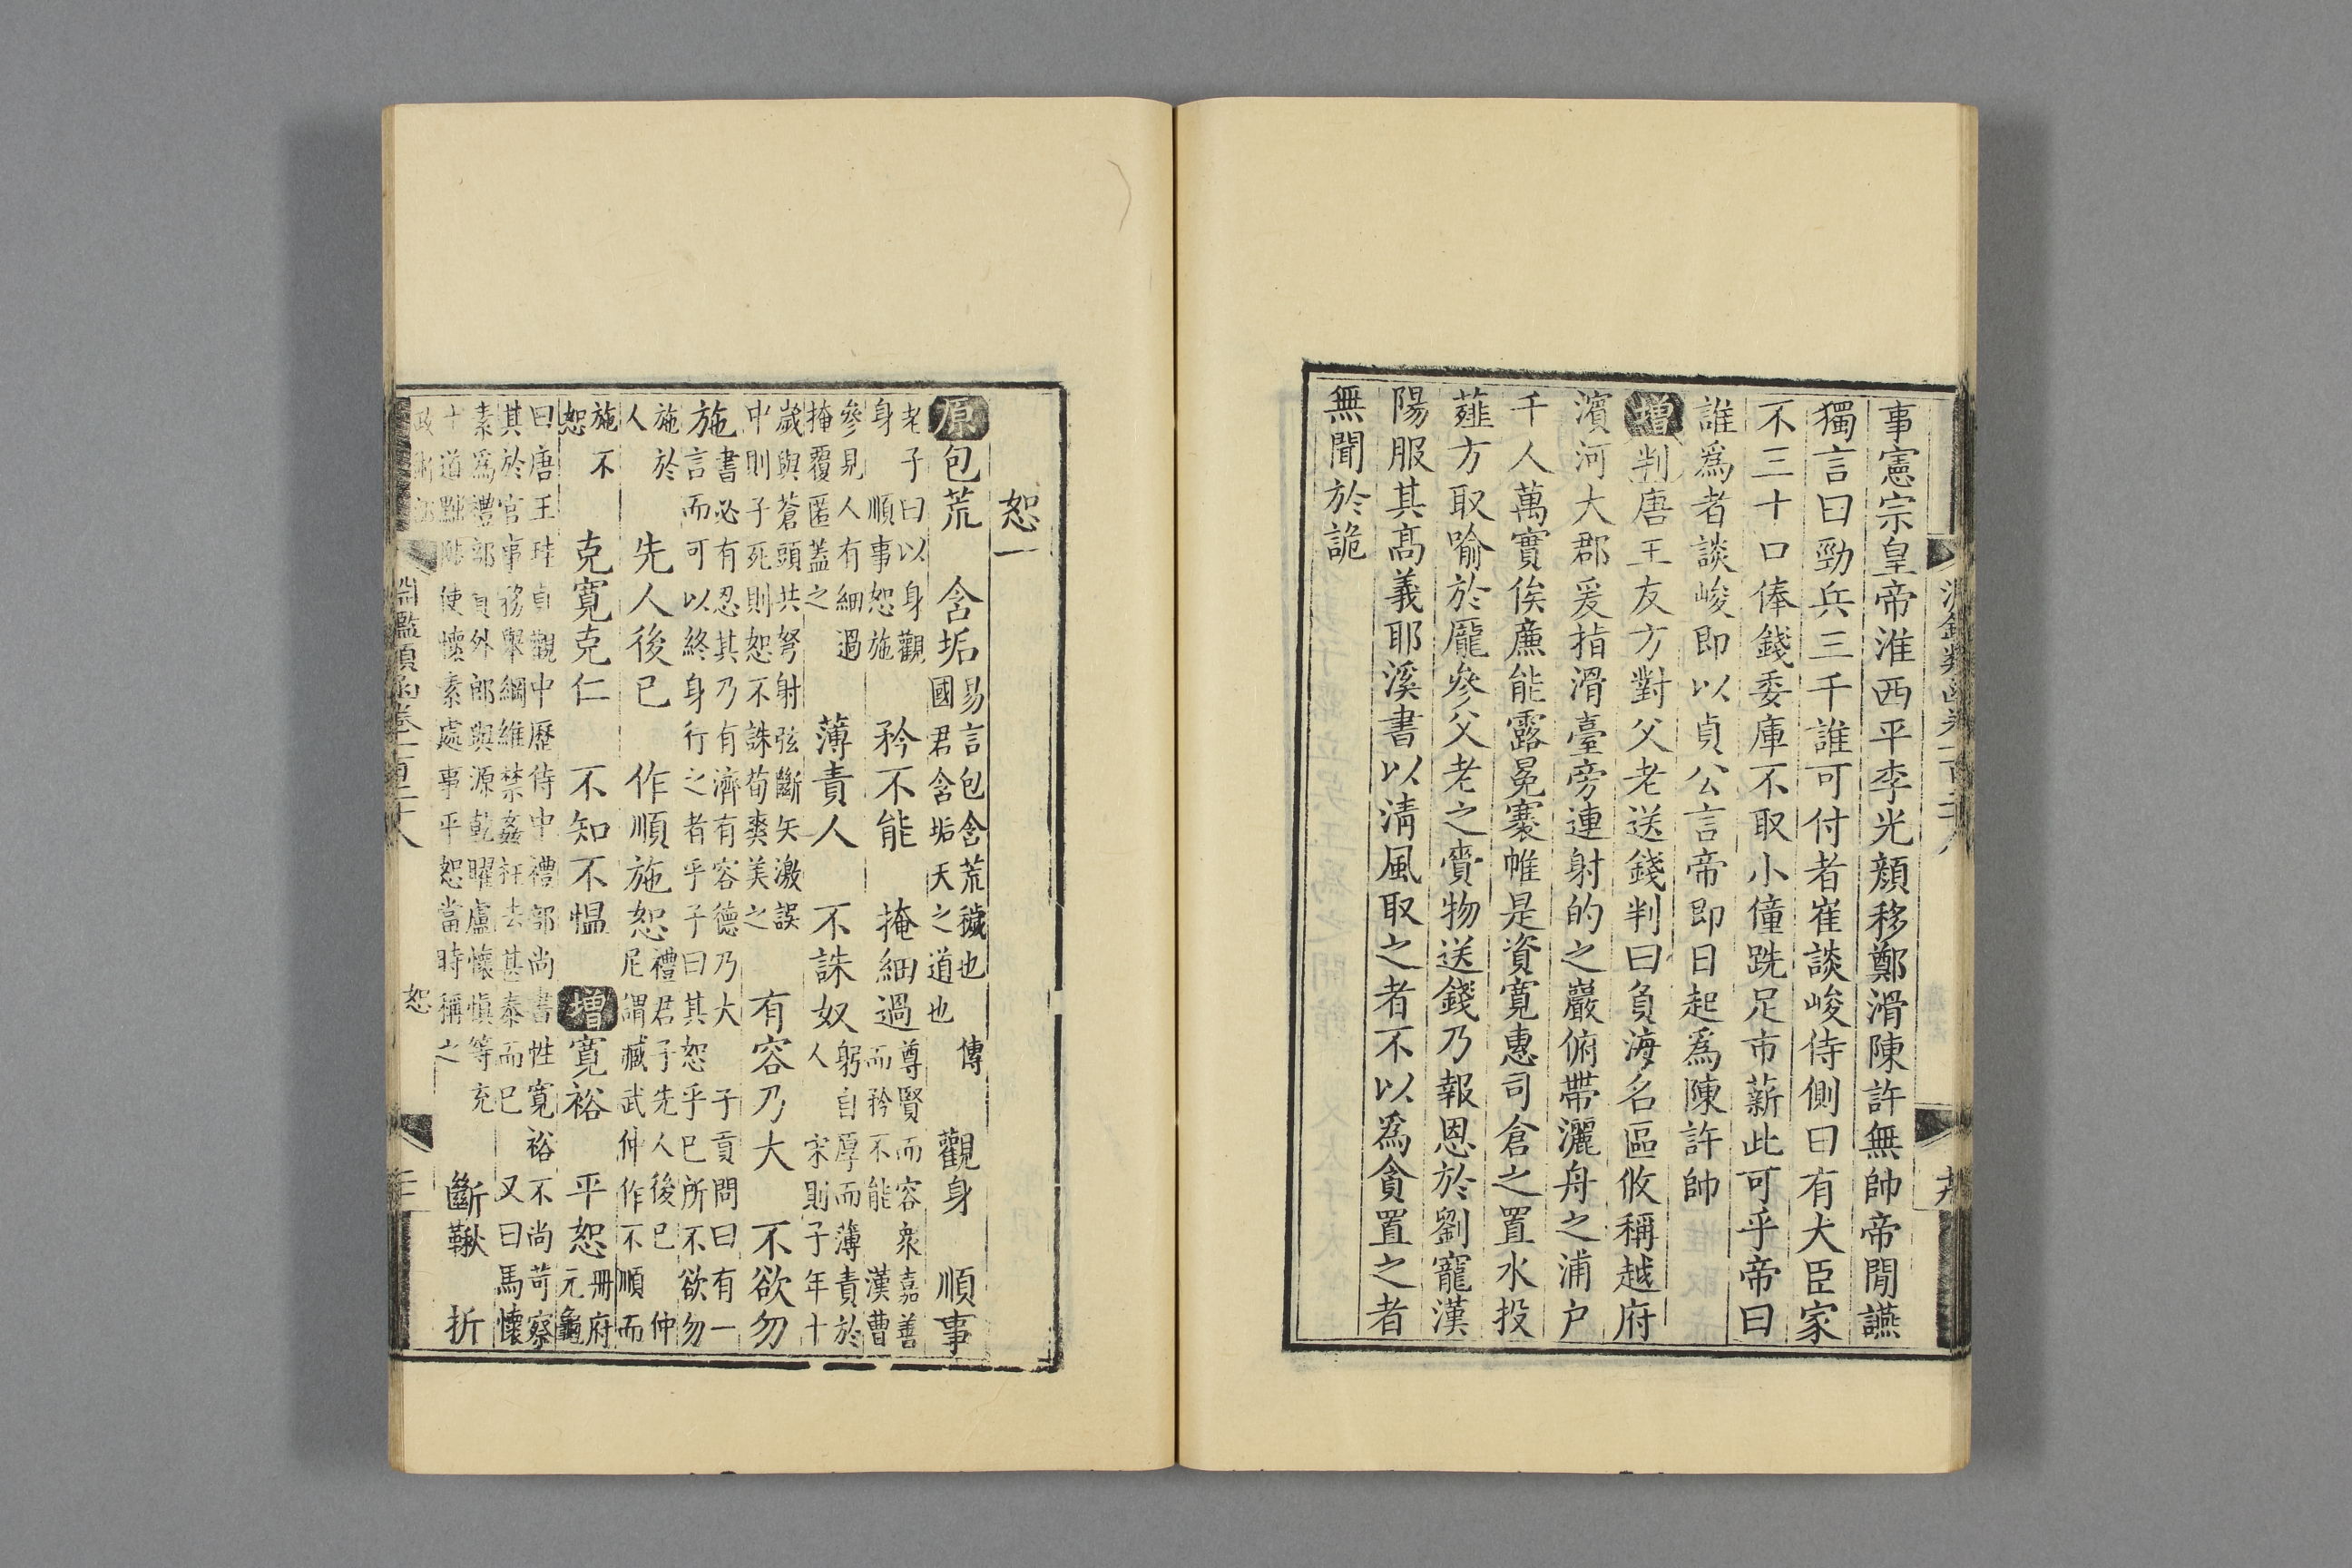 事憲宗皇帝淮西平李光顏移鄭滑陳許無帥帝閒讌
獨言曰勁兵三千誰可付者崔談峻侍側曰有大臣家
不三十口俸錢委庫不取小僮跣足市薪此可乎帝曰
誰爲者談峻即以貞公言帝即日起爲陳許帥
增判唐王友方對父老送錢判曰負海名區攸稱越府
濱河大郡爰指滑臺旁連射的之巖俯帶灑舟之浦户
千人萬實俟廉能露冕褰帷是資寬惠司倉之置水投
薤方取喻於龐參父老之賫物送錢乃報恩於劉寵漢
陽服其高義耶溪書以淸風取之者不以爲貪置之者
無聞於詭
恕一
原包荒 含垢易言包含荒穢也 傳國君含垢天之道也 觀身 順事
老子曰以身觀身 順事恕施 矜不能 掩細過尊賢而容衆嘉善而矜不能 漢曹
參見人有細過掩覆匿蓋之 薄責人 不誅奴躬自厚而薄責於人 宋則子年十
歲與蒼頭共弩射弦斷矢激誤中則子死則恕不誅荀爽美之 有容乃大 不欲勿
施書必有忍其乃有濟有容德乃大 子貢問曰有一言而可以終身行之者乎子曰其恕乎已所不欲勿
施於人 先人後已 作順施恕禮君子先人後已 仲尼謂臧武仲作不順而
施不恕 克寬克仁 不知不愠 增寬裕 平恕冊府元龜
曰唐王珪貞觀中歷侍中禮部尚書性寬裕不尚苛察其於官事務舉綱維禁姦枉去甚泰而已 又曰馬懷
素爲禮部員外郎與源乾曜盧懷愼等充十道黜陟使懷素處事平恕當時稱之 斷鞦 折
淵鑑類函卷二百 恕